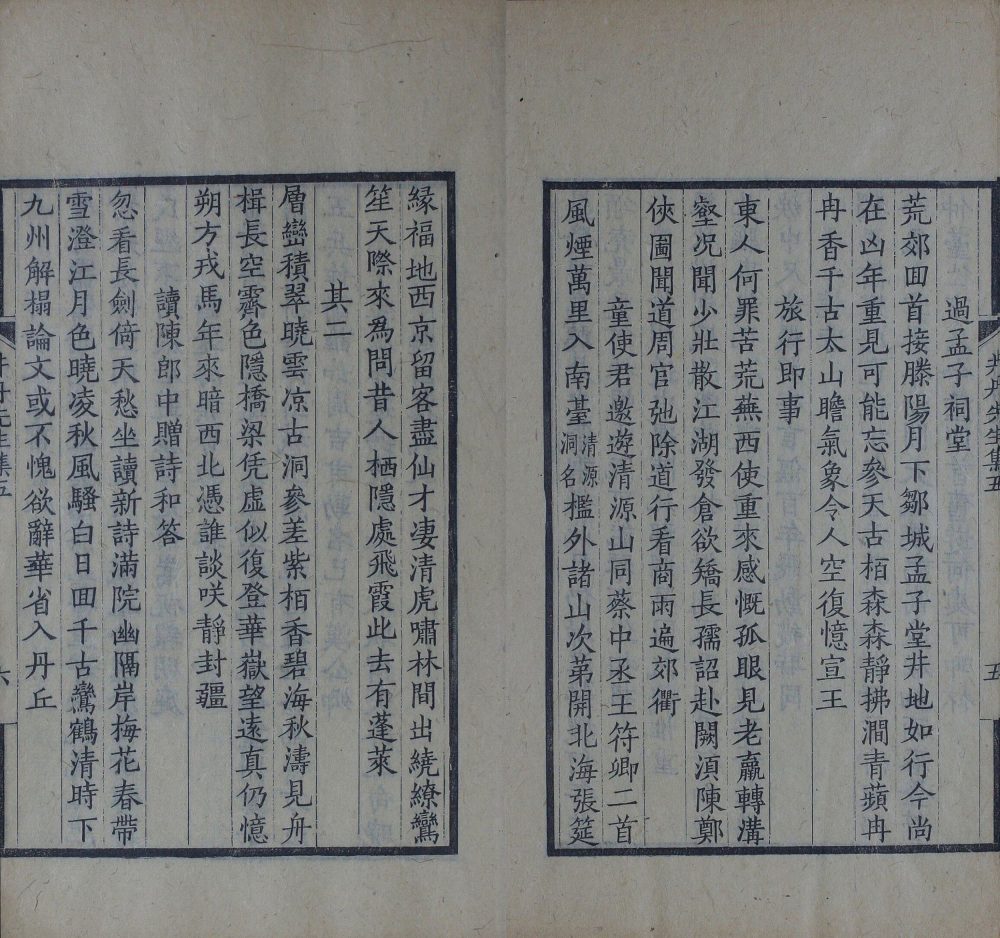 過孟子祠堂
荒郊囬首接滕陽月下鄒城孟子堂井地如行今尚
在凶年重見可能忘參天古栢森森靜拂澗青蘋冉
冉香千古太山瞻氣象令人空復憶宣王
旅行即事
東人何罪苦荒蕪西使重來感慨孤眼見老羸轉溝
壑况聞少壯散江湖發倉欲矯長孺詔赴闕湏陳鄭
俠圖聞道周官弛除道行看商雨遍郊衢
童使君邀遊清源山同蔡中丞王符卿二首
風煙萬里入南䑓清源洞名檻外諸山次第開北海張筵
緣福地西京留客盡仙才凄清虎嘯林間出繞繚鸞
笙天際來爲問昔人栖隱處飛霞此去有蓬萊
其二
層巒積翠曉雲凉古洞參差紫栢香碧海秋濤見舟
楫長空霽色隱橋梁凭虛似復登華嶽望遠真仍憶
朔方戎馬年來暗西北憑誰談咲靜封疆
讀陳郎中贈詩和答
忽看長劍倚天愁坐讀新詩滿院幽隔岸梅花春帶
雪澄江月色曉凌秋風騷白日囬千古鸞鶴清時下
九州解榻論文或不愧欲辭華省入丹丘
井丹先生集五
五
井丹先生集五
六